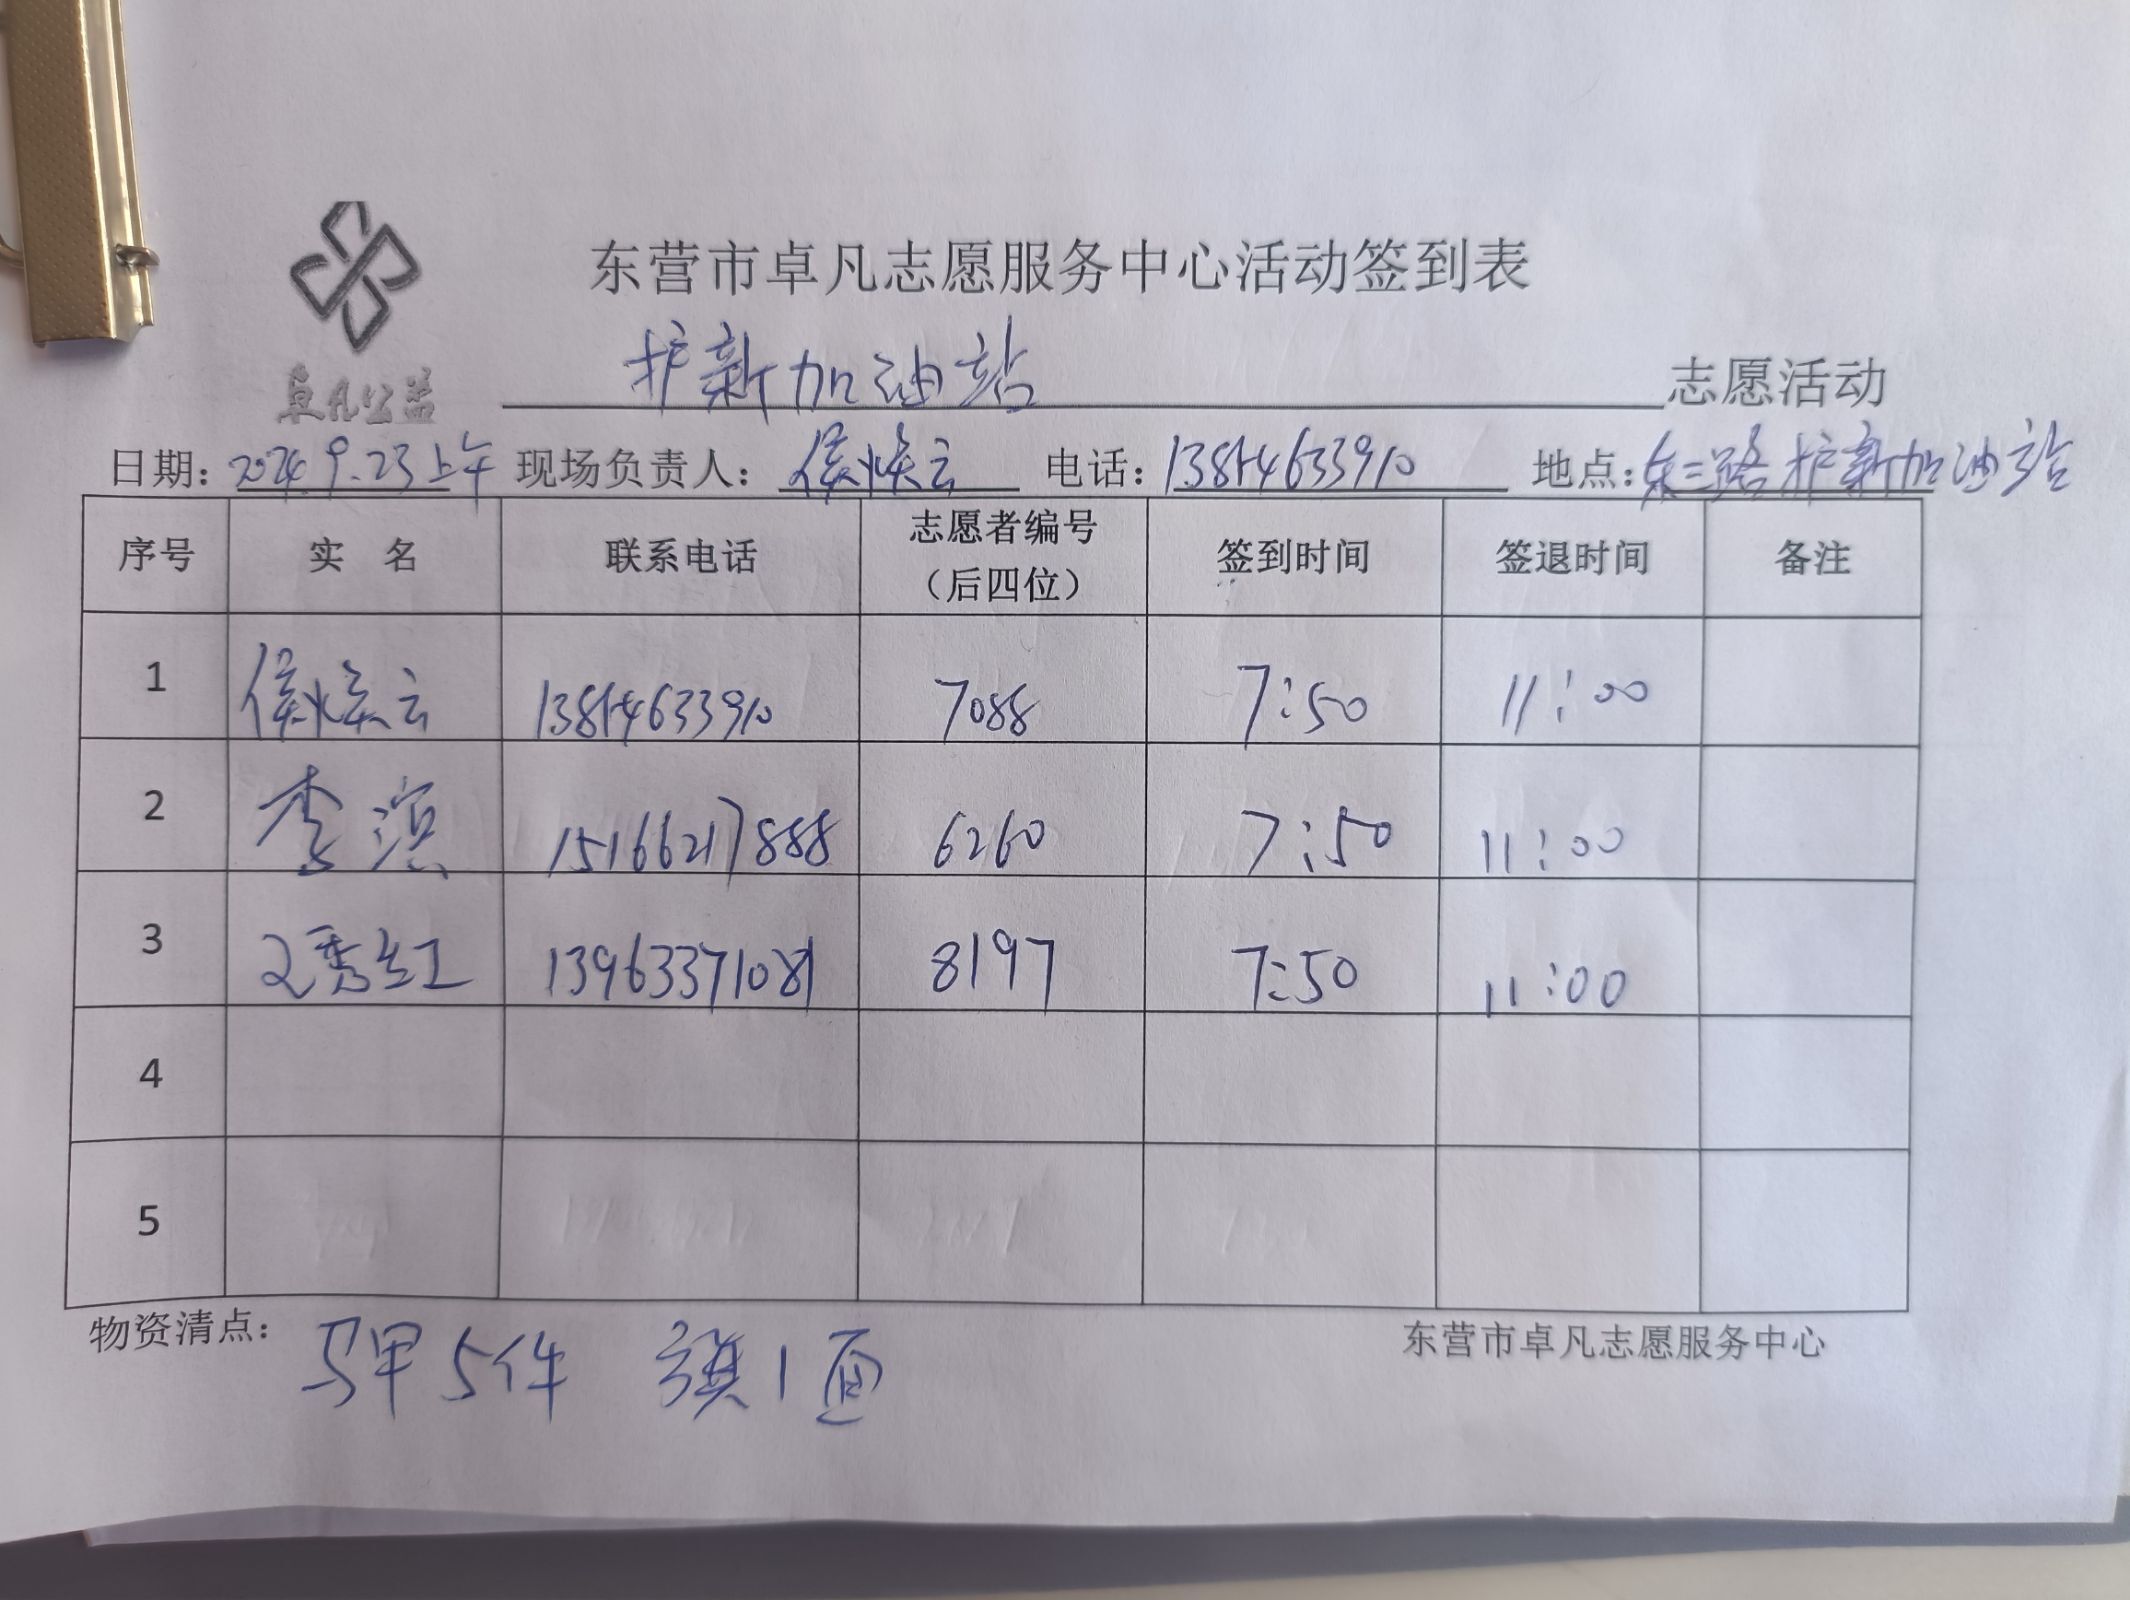 东营市卓凡志愿服务中心活动签到表
卓凡公益
护新加油站 志愿活动
日期：2024.9.23上午 现场负责人：侯焕云 电话：13854633910 地点：东三路护新加油站
序号 实 名 联系电话 志愿者编号（后四位） 签到时间 签退时间 备注
1 侯焕云 13854633910 7088 7:50 11:00
2 李滨 15166217888 6260 7:50 11:00
3 秀红 13963371081 8197 7:50 11:00
4
5
物资清点：马甲5件 旗1面
东营市卓凡志愿服务中心